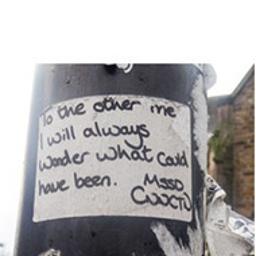 To the other me
I will always
wonder what could
have been. MSSD